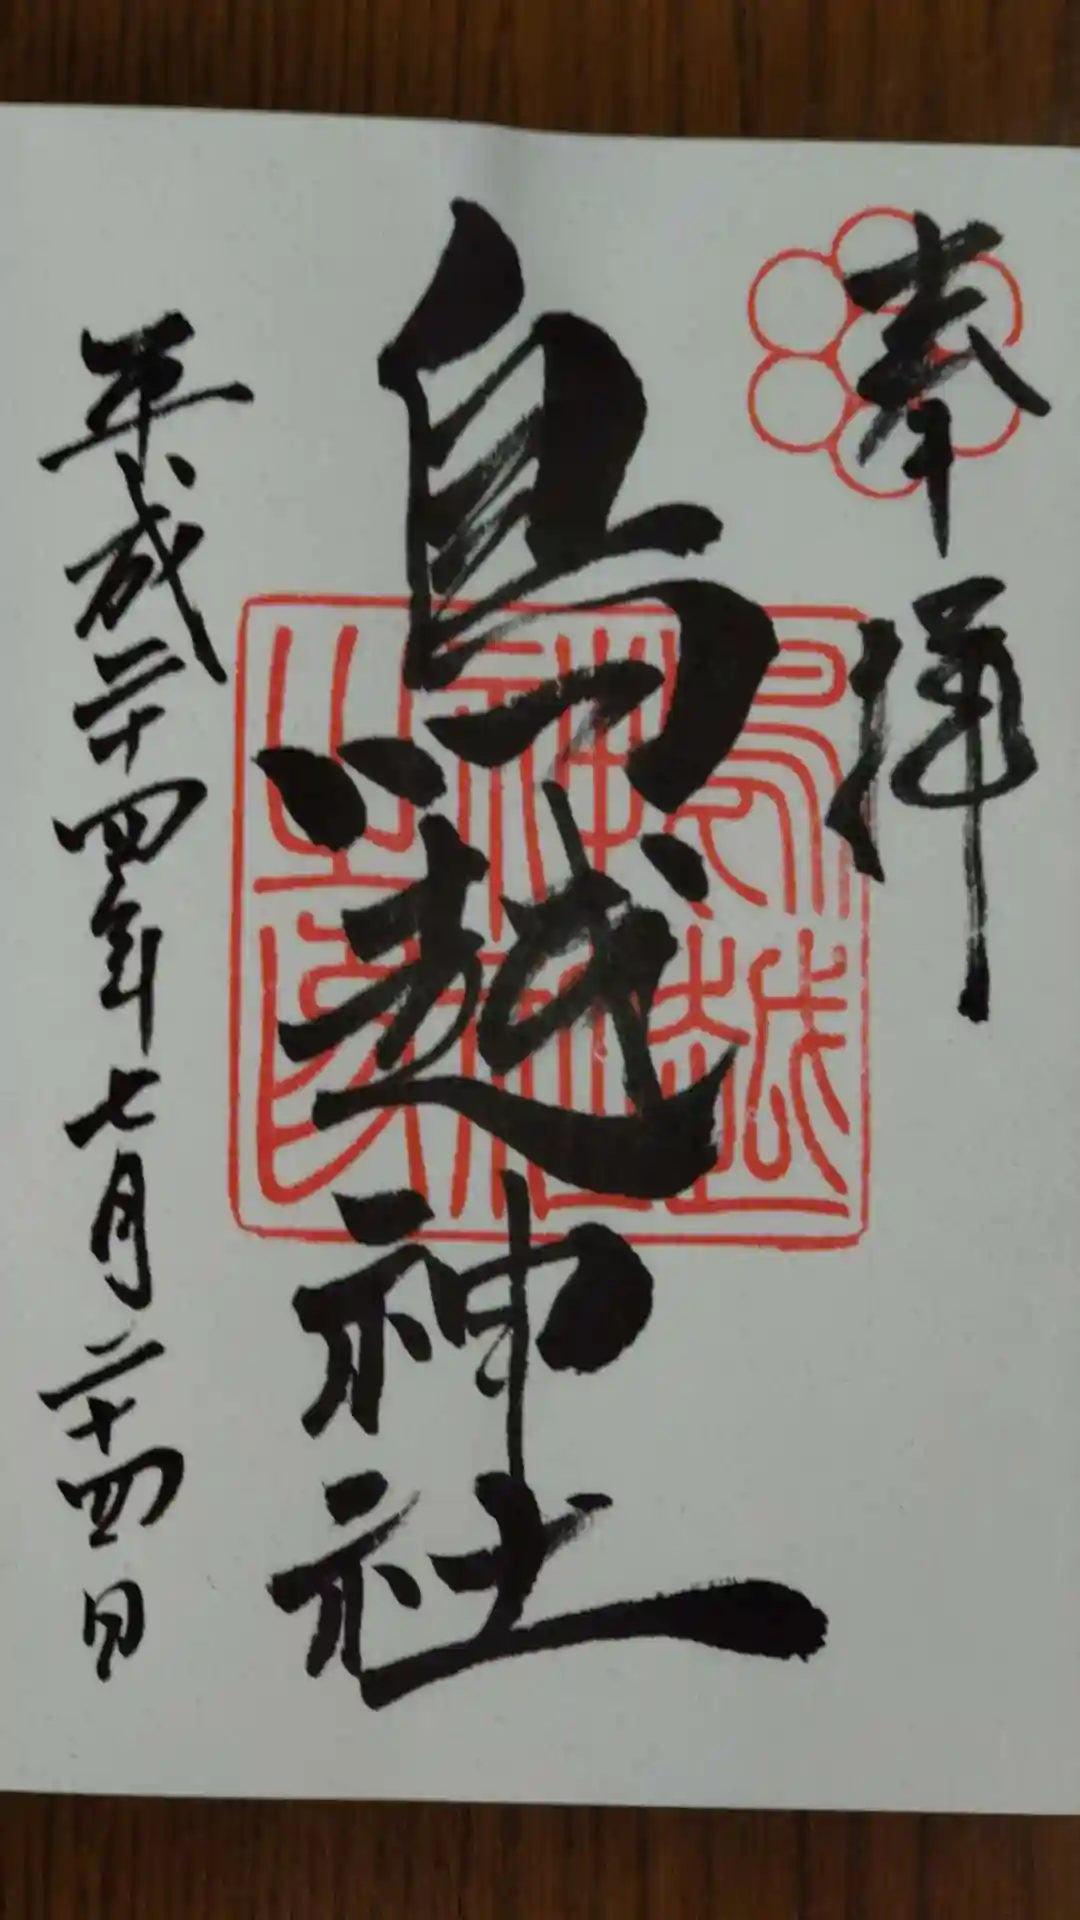 奉拝
鳥越神社
平成二十四年七月二十四日
鳥越
神社
之印